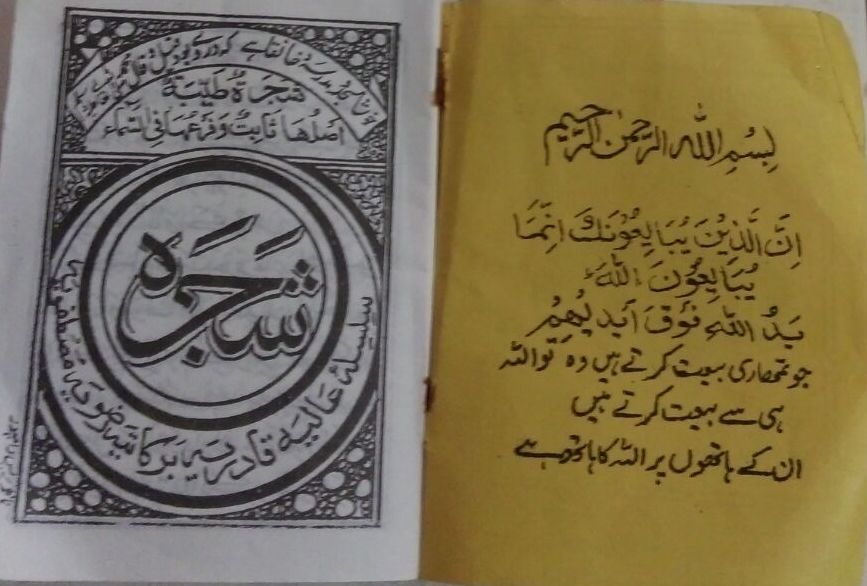 شجرة طيبة
اصلها ثابت و فرعها في السماء
شجره
سلسلۂ عالیه قادریه برکاتیه رضویه مصطفویه
بِسْمِ اللهِ الرَّحْمٰنِ الرَّحِيْمِ
اِنَّ الَّذِيْنَ يُبَايِعُوْنَكَ اِنَّمَا
يُبَايِعُوْنَ اللهَ
يَدُ اللهِ فَوْقَ اَيْدِيْهِمْ
جو تمھاری بیعت کرتے ہیں وہ تو اللہ
ہی سے بیعت کرتے ہیں
ان کے ہاتھوں پر اللہ کا ہاتھ ہے